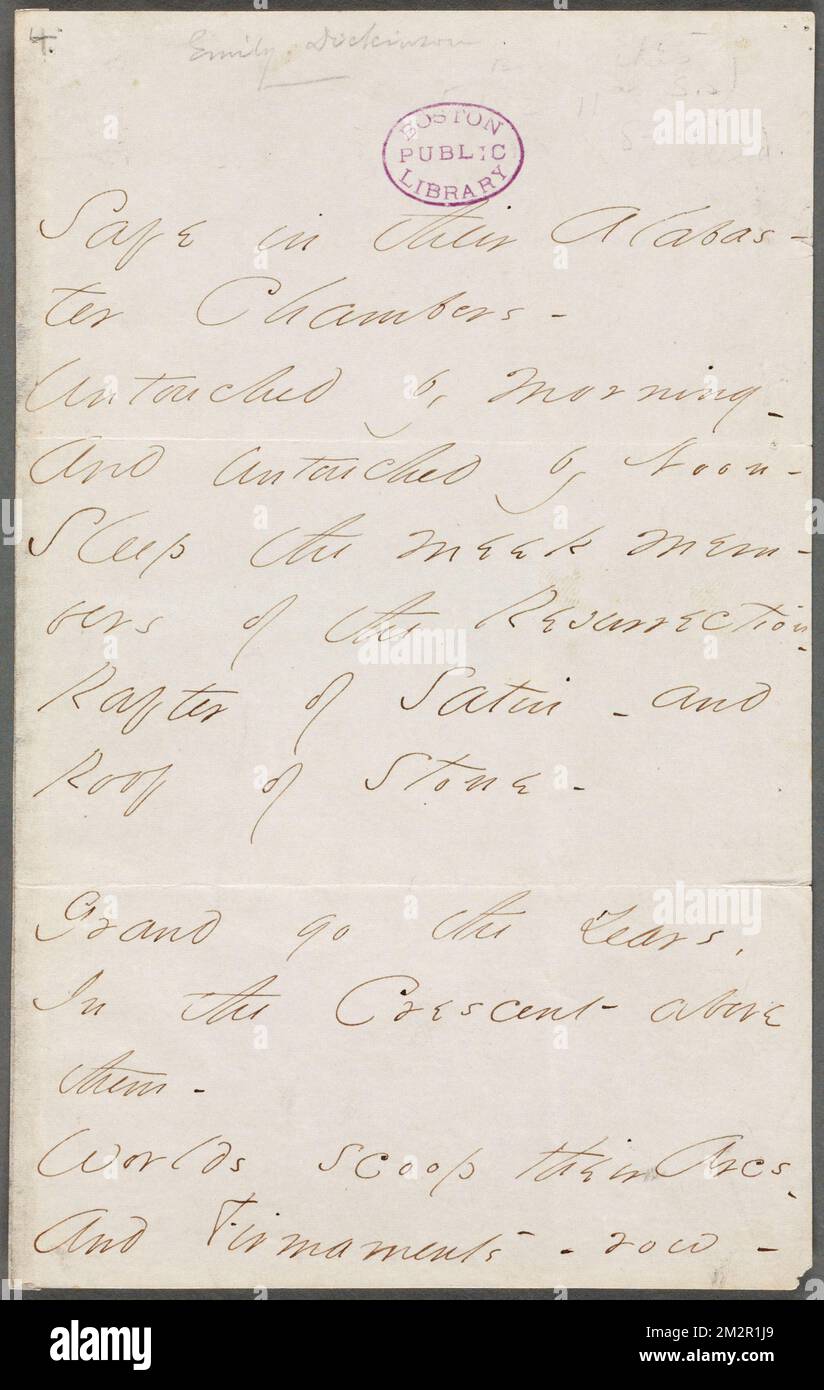 4.
Emily Dickinson
BOSTON
PUBLIC
LIBRARY
Safe in their Alabas-
ter Chambers -
Untouched by Morning -
And Untouched by Noon -
Sleep the meek mem-
bers of the Resurrection -
Rafter of Satin - and
Roof of Stone -
Grand go the Years,
In the Crescent above
them -
Worlds scoop their Arcs -
And Firmaments - row -
alamy
alamy
alamy
alamy
Image ID: 2M2R1J9
www.alamy.com